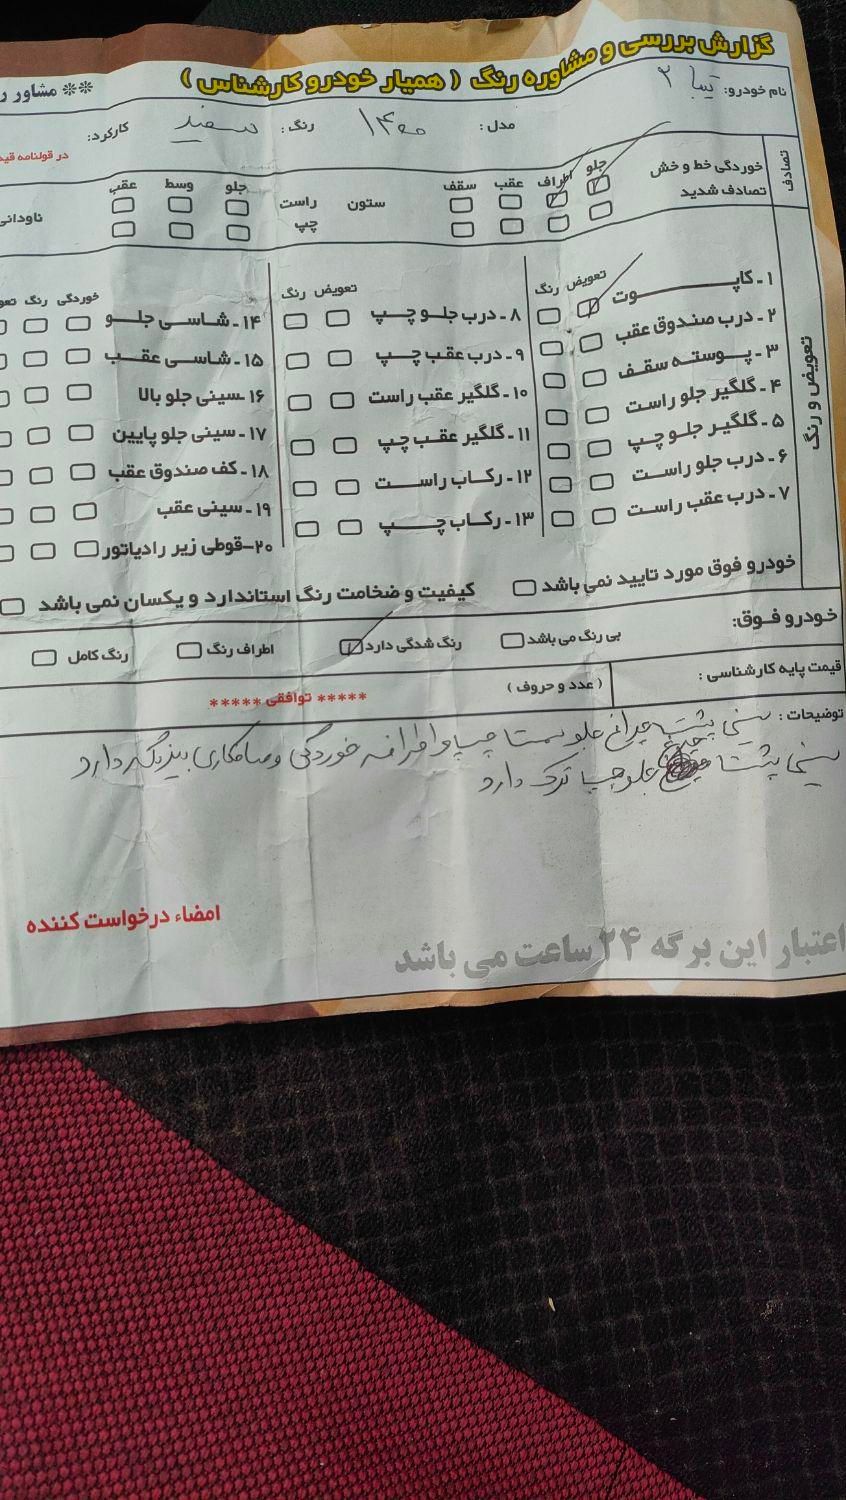 گزارش بررسی و مشاوره رنگ ( همیار خودرو کارشناس )
** مشاور ر
نام خودرو: تیبا ۲
مدل: ۱۴۰۰ رنگ: سفید کارکرد:
در قولنامه قید
تصادف
خوردگی خط و خش
تصادف شدید
جلو اطراف عقب سقف
ستون راست چپ
جلو وسط عقب
ناودانی
تعویض و رنگ
تعویض رنگ
۱- کاپوت
۲- درب صندوق عقب
۳- پوسته سقف
۴- گلگیر جلو راست
۵- گلگیر جلو چپ
۶- درب جلو راست
۷- درب عقب راست
تعویض رنگ
۸- درب جلو چپ
۹- درب عقب چپ
۱۰- گلگیر عقب راست
۱۱- گلگیر عقب چپ
۱۲- رکاب راست
۱۳- رکاب چپ
خوردگی رنگ تعو
۱۴- شاسی جلو
۱۵- شاسی عقب
۱۶- سینی جلو بالا
۱۷- سینی جلو پایین
۱۸- کف صندوق عقب
۱۹- سینی عقب
۲۰- قوطی زیر رادیاتور
خودرو فوق مورد تایید نمی باشد کیفیت و ضخامت رنگ استاندارد و یکسان نمی باشد
خودرو فوق: بی رنگ می باشد رنگ شدگی دارد اطراف رنگ رنگ کامل
قیمت پایه کارشناسی : ( عدد و حروف ) ***** توافقی *****
توضیحات : سینی پشت چراغ جلو سمت چپ و اطراف خوردگی و صافکاری بیرنگ دارد
سینی پشت چراغ جلو چپ ترک دارد
امضاء درخواست کننده
اعتبار این برگه ۲۴ ساعت می باشد